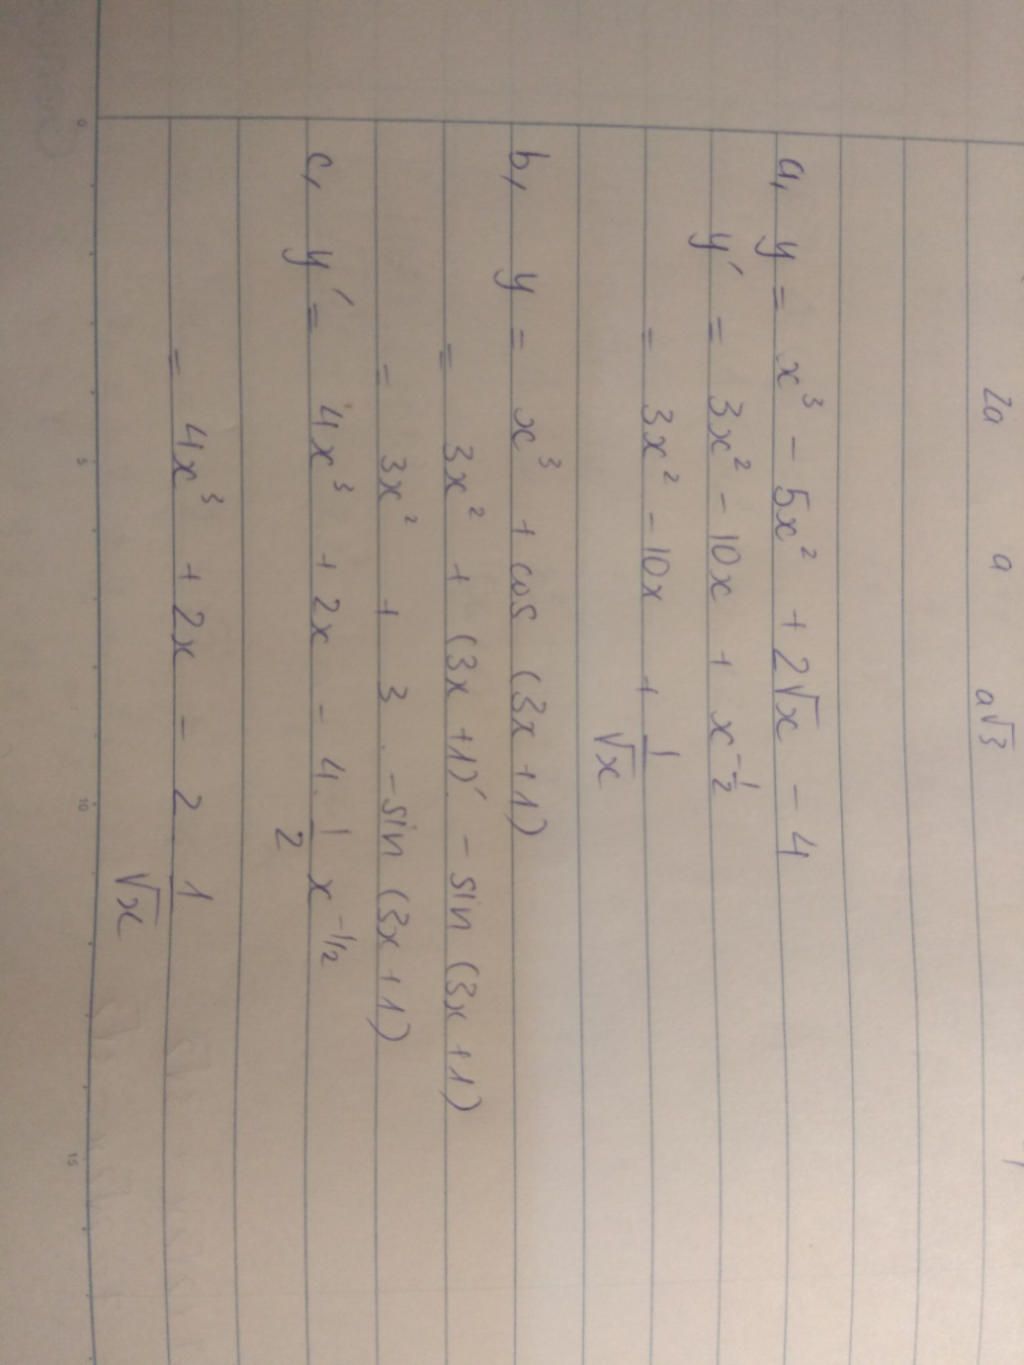 2a a a√3
a, y = x³ - 5x² + 2√x - 4
y' = 3x² - 10x + x^-1/2
= 3x² - 10x + 1/√x
b, y = x³ + cos (3x + 1)
= 3x² + (3x + 1)'. - sin (3x + 1)
= 3x² + 3 . - sin (3x + 1)
c, y' = 4x³ + 2x - 4. 1/2 x^-1/2
= 4x³ + 2x - 2 1/√x
0 5 10 15